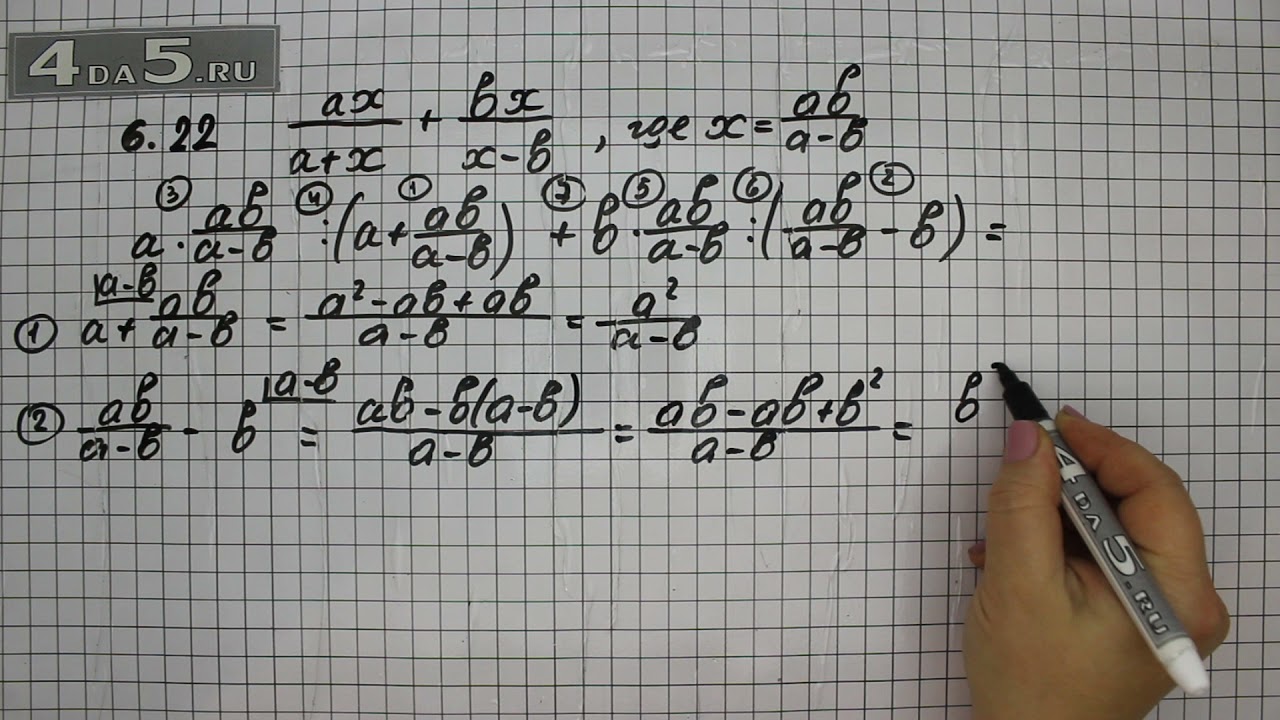 4DA5.RU
6.22 \frac{ax}{a+x} + \frac{bx}{x-b}, где x = \frac{ab}{a-b}
③ ④ ① ⑦ ⑤ ⑥ ②
a · \frac{ab}{a-b} : (a + \frac{ab}{a-b}) + b · \frac{ab}{a-b} : (\frac{ab}{a-b} - b) =
① a^{|a-b} + \frac{ab}{a-b} = \frac{a^2 - ab + ab}{a-b} = \frac{a^2}{a-b}
② \frac{ab}{a-b} - b^{|a-b} = \frac{ab - b(a-b)}{a-b} = \frac{ab - ab + b^2}{a-b} = b
4DA5.RU